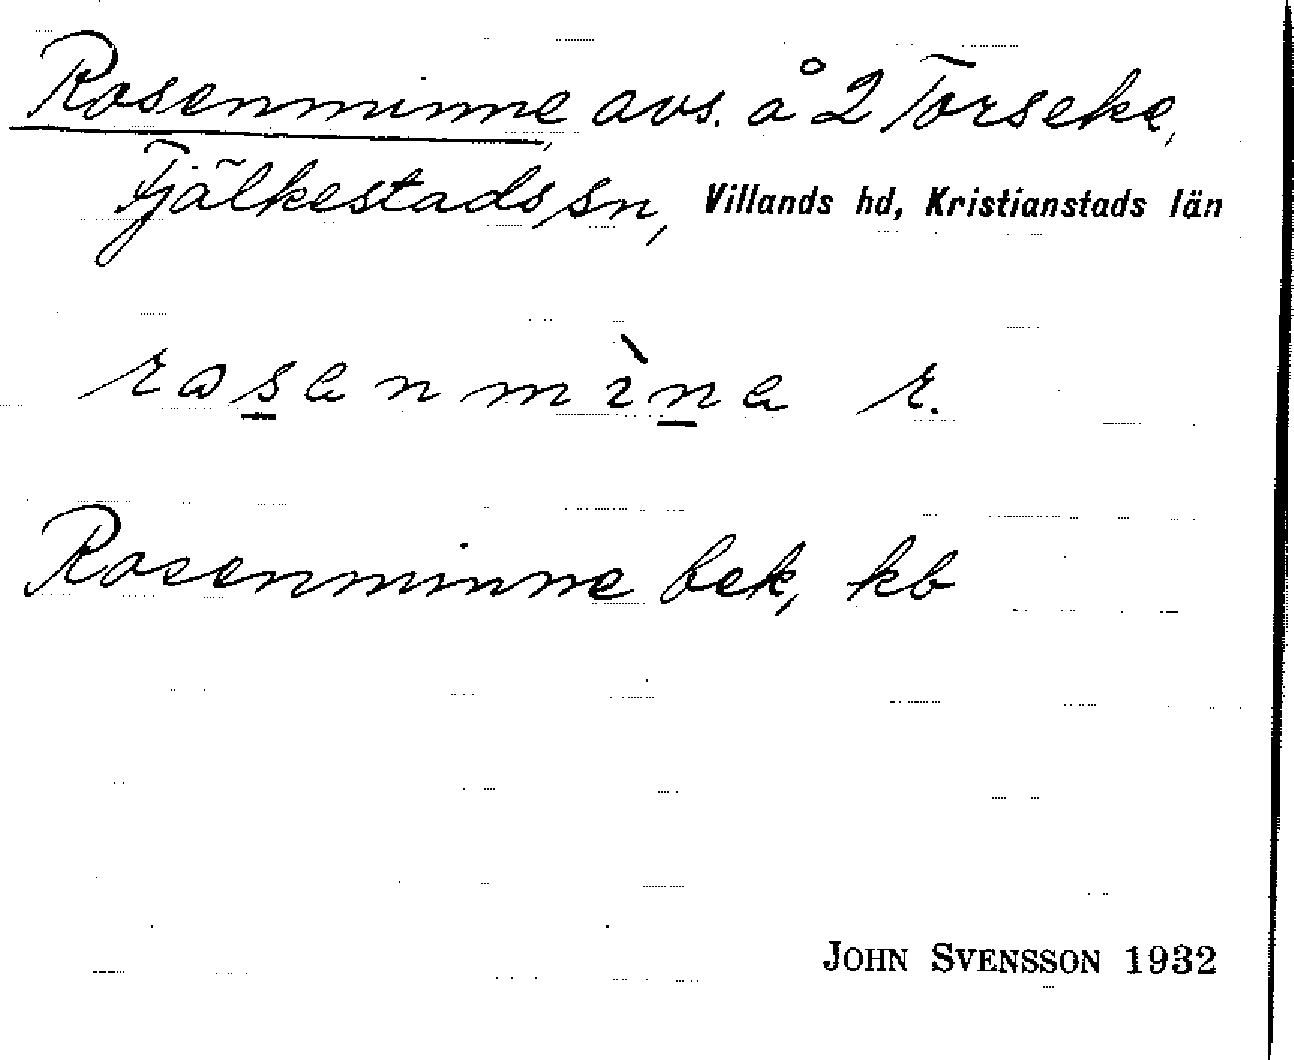 Rosenminne, avs. å 2 Torseke,
Fjälkestads sn, Villands hd, Kristianstads län
rosenmìne r.
Rosenminne bek, kb
JOHN SVENSSON 1932